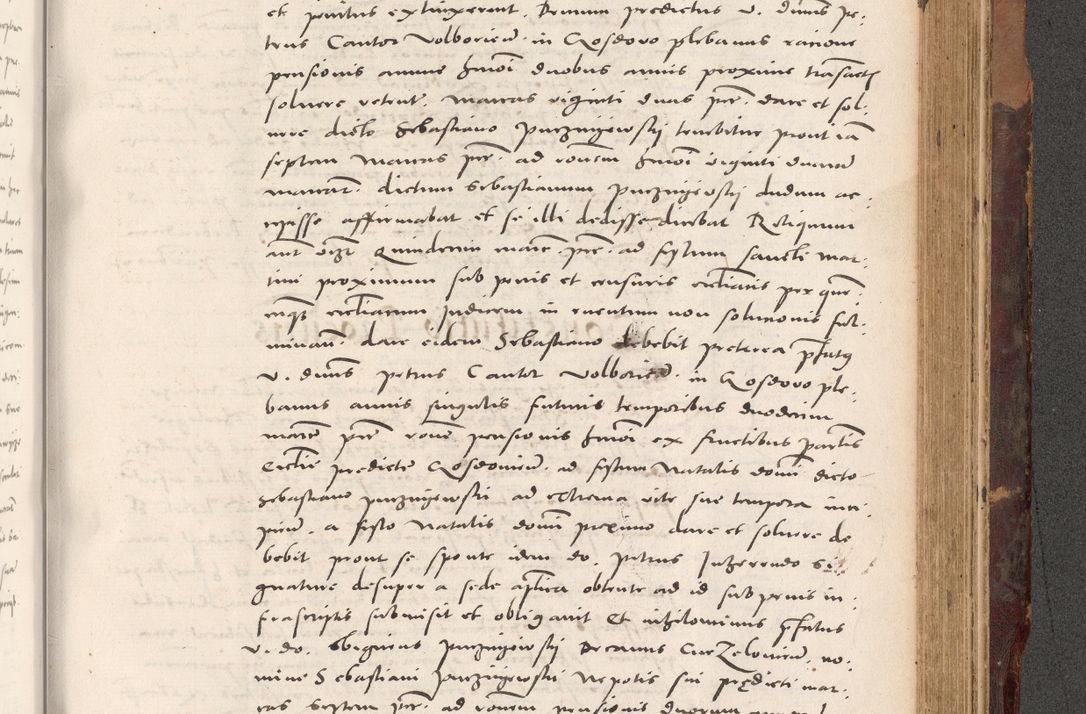 et penitus extinxerunt. Demum predictus v. dnus pe-
trus Cantor Volborien. in Gosdovo plebanus ratione
pensionis annue hmoi duobus annis proxime transactis
solvere retent. marcas viginti duas per. dare et sol-
vere dicto Sebastiano Purzingewsky tenebitur prout ia
septem marcas per. ad ronem hmoi viginti duarum
marcar. dictum Sebastianum Purzingewsky dudum ac-
cepisse affirmabat et se illi dedisse dicebat Reliquum
aut vizt quindecim marc. per. ad festum sancti mar-
tini proximum sub penis et censuris ecclesiasticis per quem-
cumque ecclesiasticum Judicem in eventum non solutionis ful-
minan. dare eidem Sebastiano debebit preterea prefatus
v. dnus petrus Cantor Volborien. in Gosdovo ple-
banus annis singulis futuris temporibus duodecim
marce per. rone pensionis hmoi ex fructibus parochialis
Ecclesie predicte Gosdovien. ad festum Natalis domini dicto
Sebastiano purzingewski ad extrema vite sue tempora inci-
piend. a festo Natalis domini proximo dare et solvere de
bebit prout se sponte idem do. Petrus Inherendo si-
gnature desuper a sede aplica obtente ad id sub penis in-
frascriptis submisit et obligavit Et nihilominus prefatus
v. do. Sbigneus Purzingewsky Decanus Curzelovien. no-
mine Sebastiani Purzingewsky Nepotis sui predicti mar-
cas septem per. ad ronem pensionis duorum